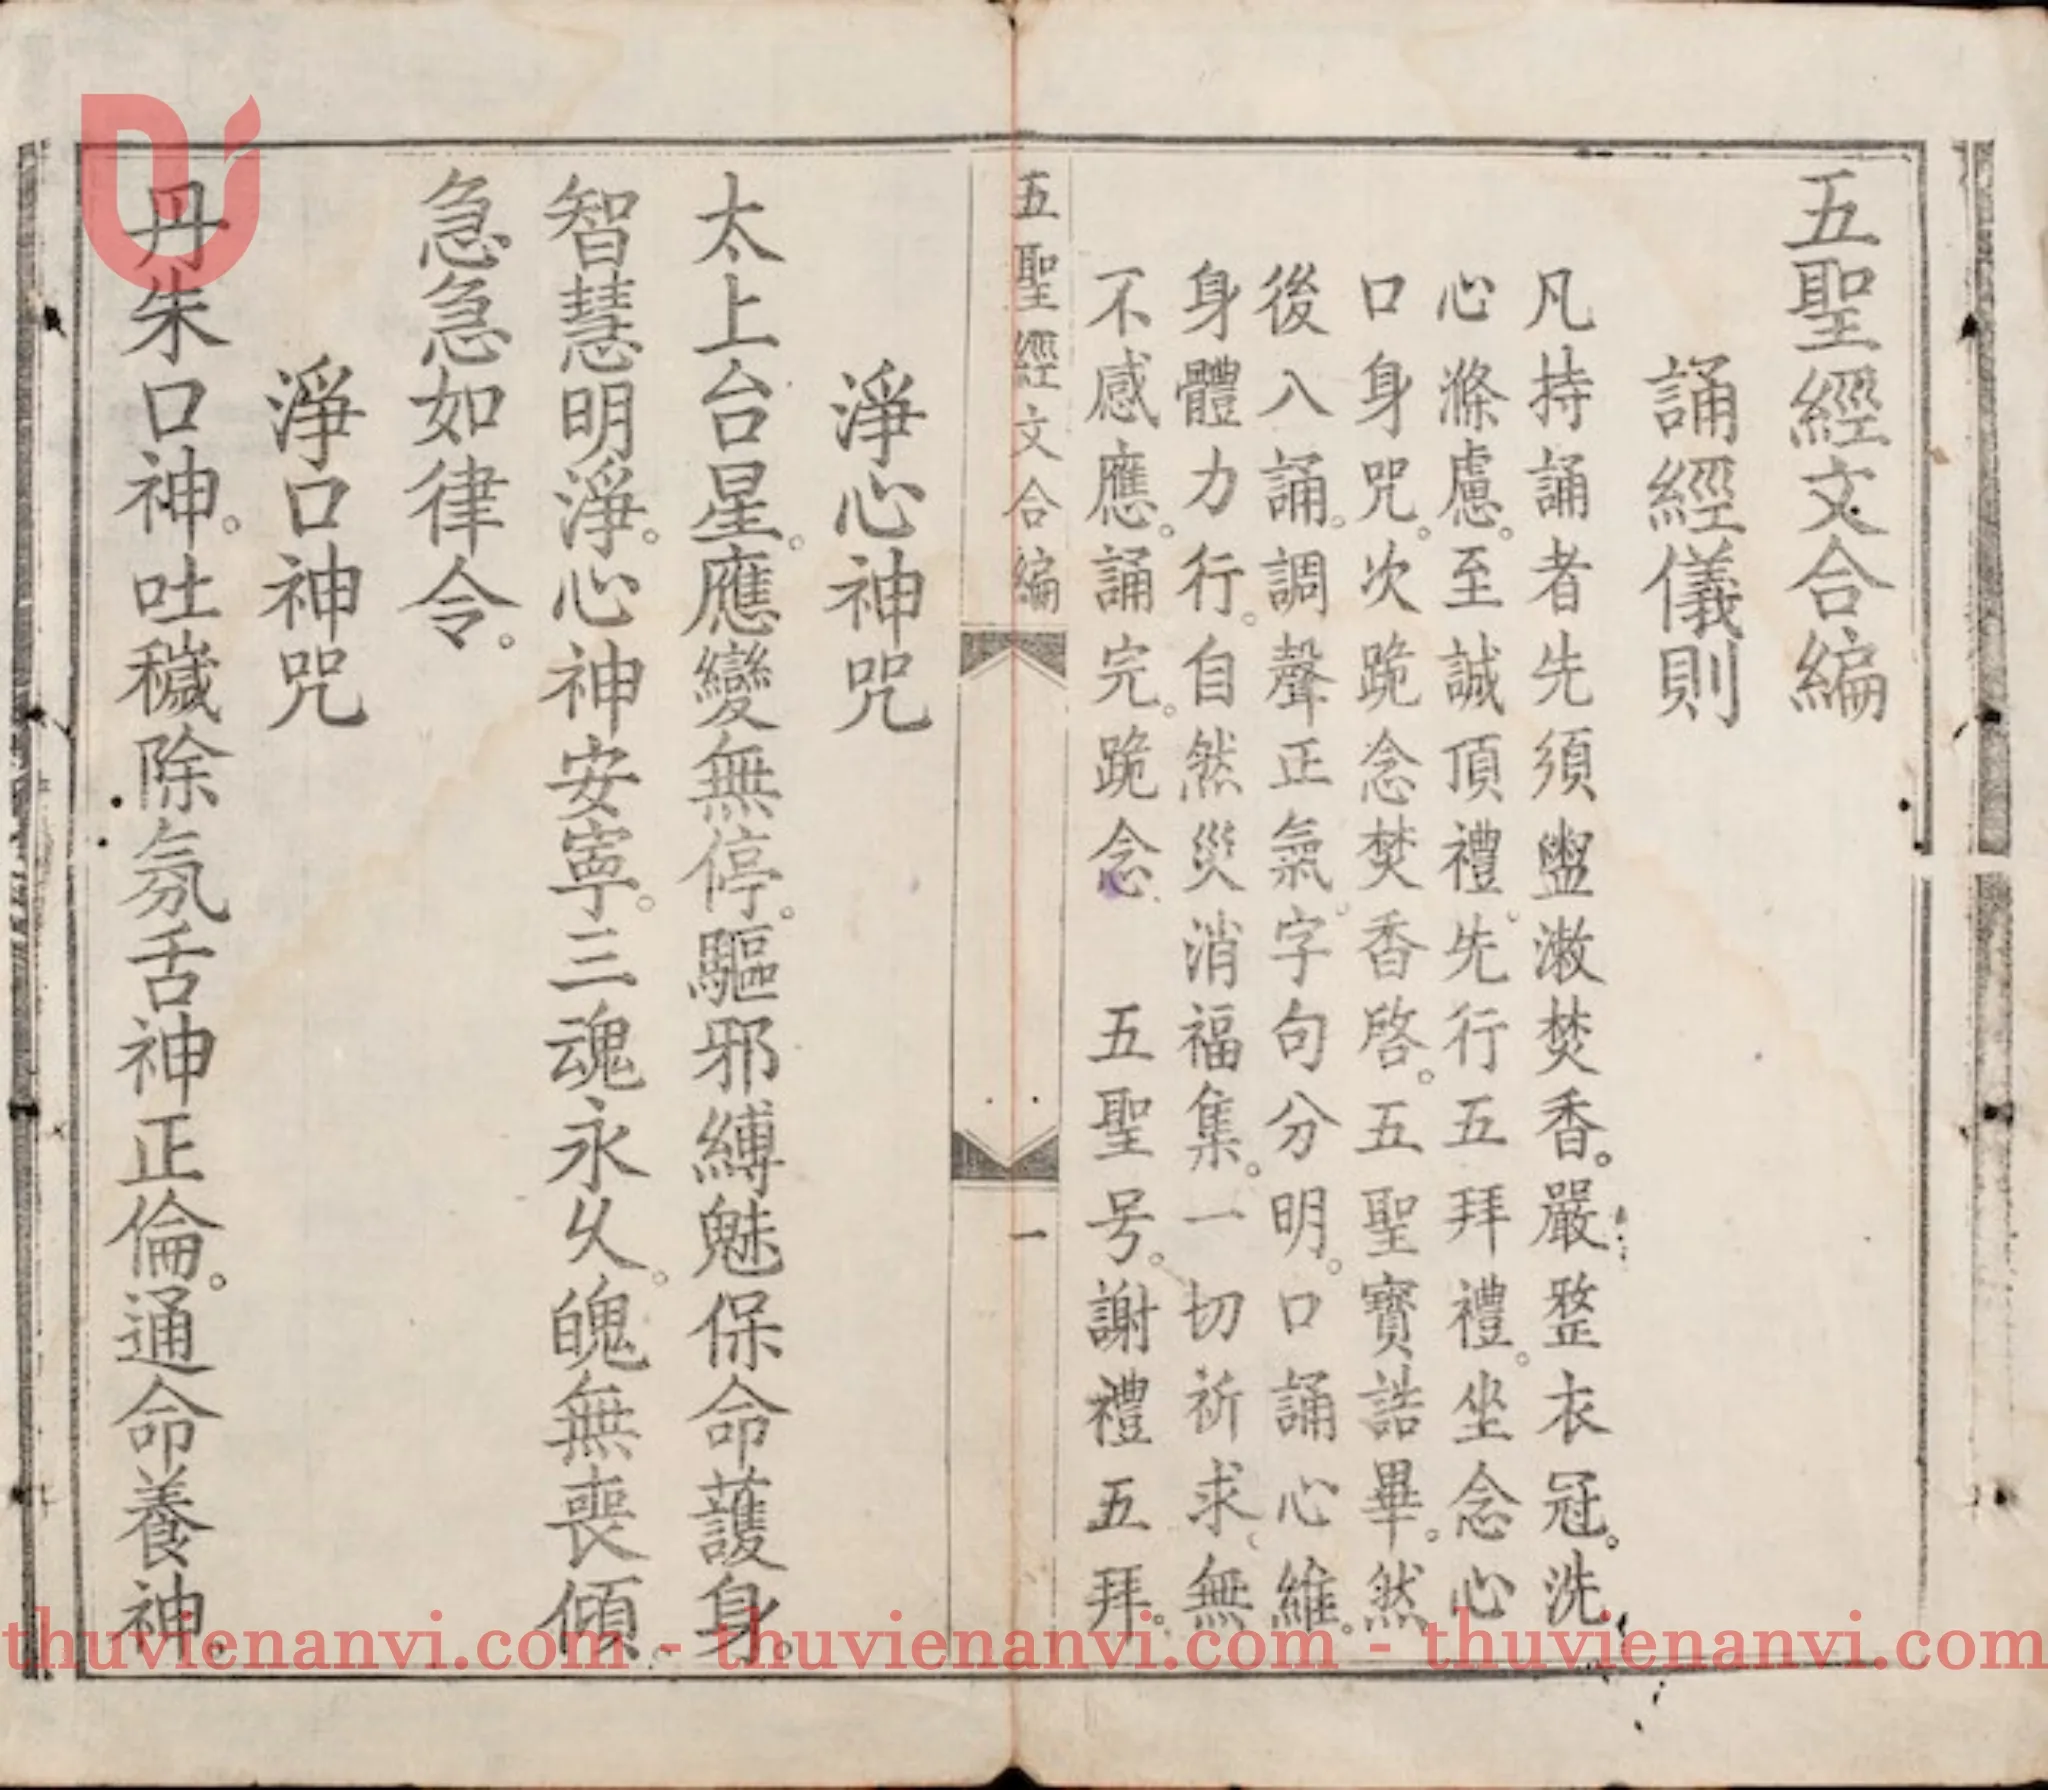 五聖經文合編
誦經儀則
凡持誦者先須盥漱焚香。嚴整衣冠。洗
心滌慮。至誠頂禮。先行五拜禮。坐念心
口身咒。次跪念焚香啓。五聖寳誥畢。然
後入誦。調聲正氣。字句分明。口誦心維。
身體力行。自然災消福集。一切祈求、無
不感應。誦完。跪念 五聖号。謝禮五拜。
五聖經文合編 一
淨心神咒
太上台星。應變無停。驅邪縛魅保命護身。
智慧明淨。心神安寧。三魂永久。魄無喪傾。
急急如律令。
淨口神咒
丹朱口神。吐穢除氛舌神正倫。通命養神。
thuvienanvi.com - thuvienanvi.com - thuvienanvi.com